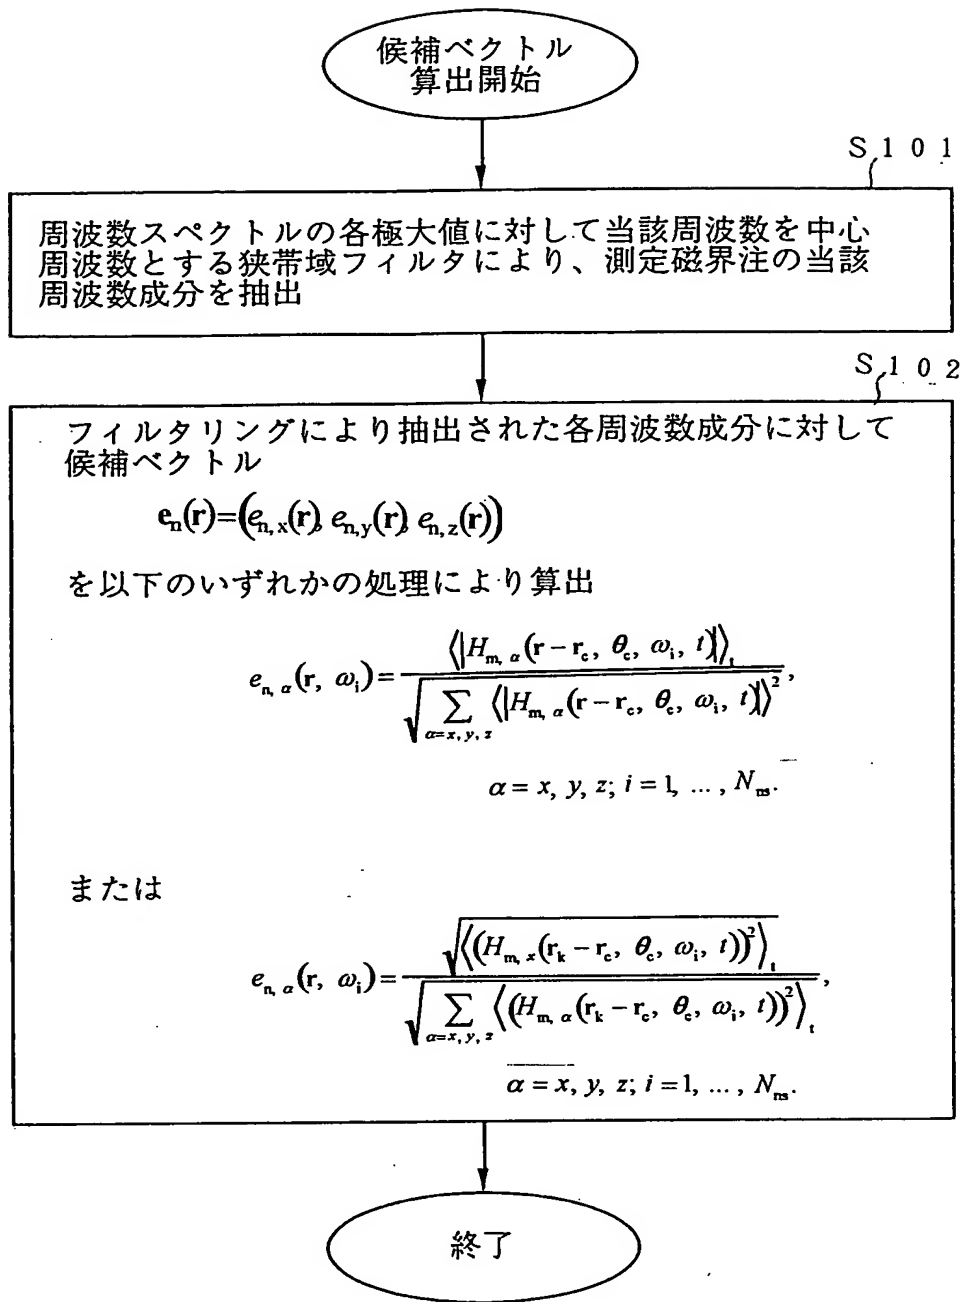 候補ベクトル
算出開始
S101
周波数スペクトルの各極大値に対して当該周波数を中心
周波数とする狭帯域フィルタにより、測定磁界注の当該
周波数成分を抽出
S102
フィルタリングにより抽出された各周波数成分に対して
候補ベクトル
e_n(r)=(e_{n,x}(r), e_{n,y}(r), e_{n,z}(r))
を以下のいずれかの処理により算出
e_{n, α}(r, ω_i)=⟨|H_{m, α}(r − r_c, θ_c, ω_i, t)|⟩_t / √(∑_{α=x, y, z}⟨|H_{m, α}(r − r_c, θ_c, ω_i, t)|⟩²),
α = x, y, z; i = 1, ..., N_{ns}.
または
e_{n, α}(r, ω_i)=√⟨(H_{m, x}(r_k − r_c, θ_c, ω_i, t))²⟩_t / √(∑_{α=x, y, z}⟨(H_{m, α}(r_k − r_c, θ_c, ω_i, t))²⟩_t),
α = x, y, z; i = 1, ..., N_{ns}.
終了